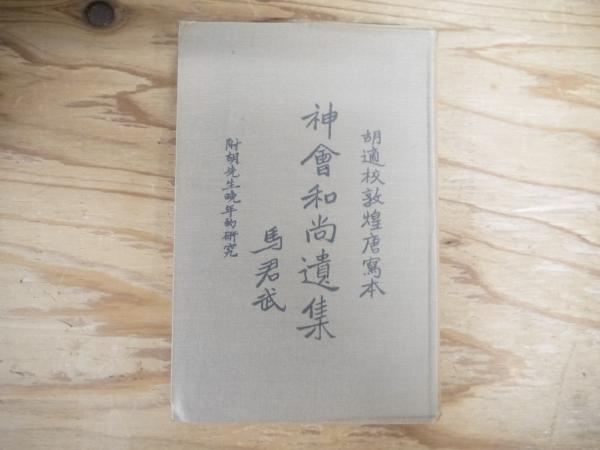 胡適校敦煌唐寫本
神會和尚遺集
馬君武
附胡先生晚年的研究